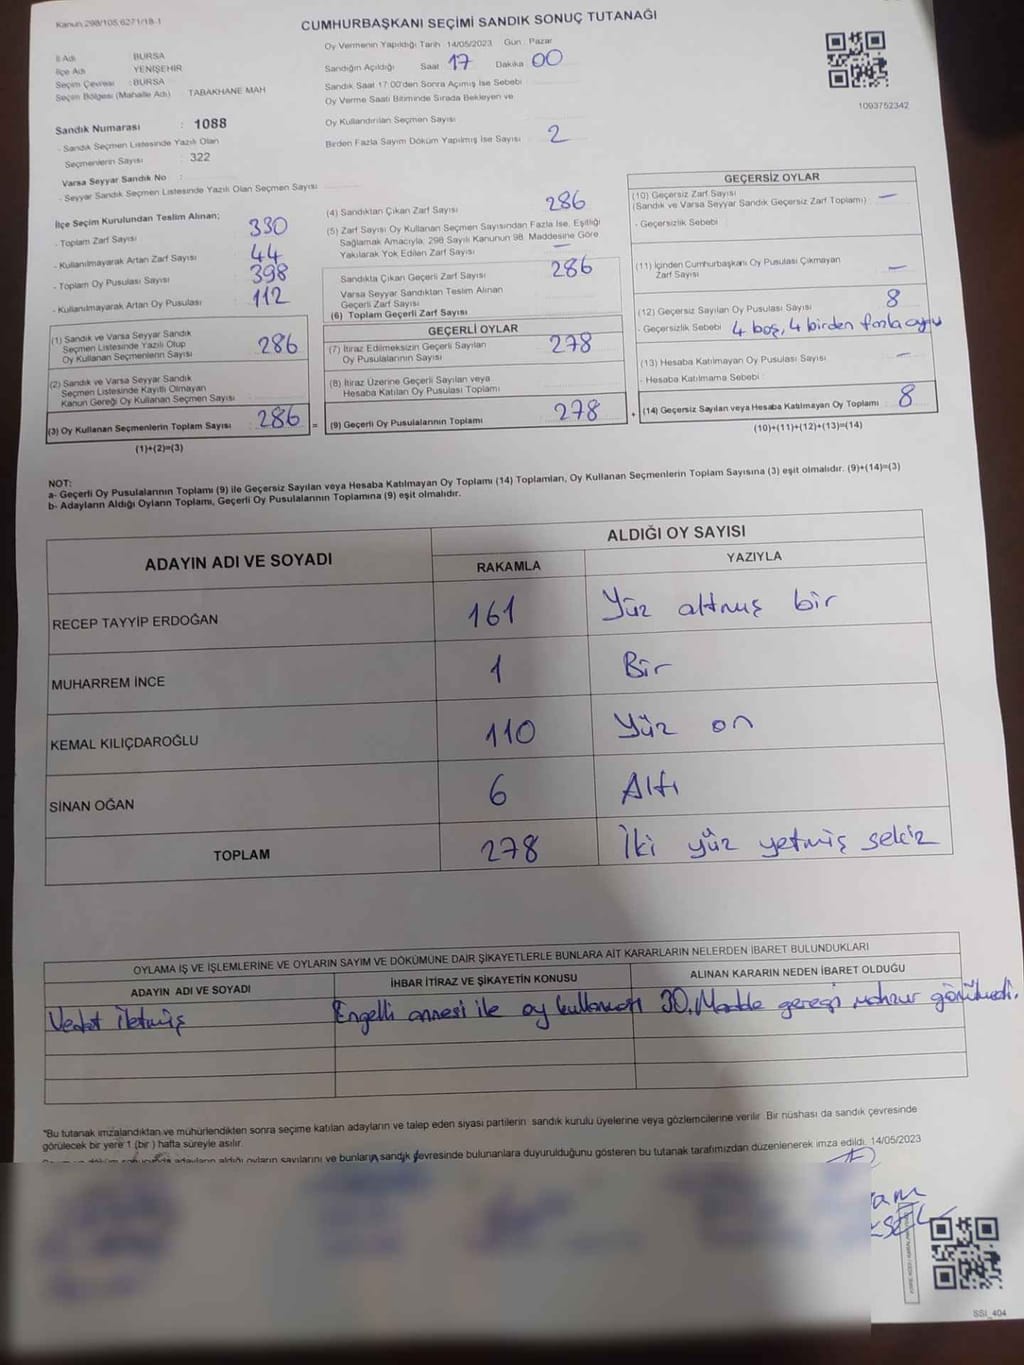 Kanun:298/105,6271/18-1
CUMHURBAŞKANI SEÇİMİ SANDIK SONUÇ TUTANAĞI
İl Adı BURSA
İlçe Adı YENİŞEHİR
Seçim Çevresi : BURSA
Seçim Bölgesi (Mahalle Adı) TABAKHANE MAH
Oy Vermenin Yapıldığı Tarih 14/05/2023 Gün : Pazar
Sandığın Açıldığı Saat 17 Dakika 00
Sandık Saat 17:00'den Sonra Açımış İse Sebebi
Oy Verme Saati Bitiminde Sırada Bekleyen ve
Oy Kullandırılan Seçmen Sayısı
Birden Fazla Sayım Döküm Yapılmış İse Sayısı 2
1093752342
Sandık Numarası : 1088
- Sandık Seçmen Listesinde Yazılı Olan
Seçmenlerin Sayısı : 322
Varsa Seyyar Sandık No :
- Seyyar Sandık Seçmen Listesinde Yazılı Olan Seçmen Sayısı
İlçe Seçim Kurulundan Teslim Alınan;
- Toplam Zarf Sayısı 330
- Kullanılmayarak Artan Zarf Sayısı 44
- Toplam Oy Pusulası Sayısı 398
- Kullanılmayarak Artan Oy Pusulası 112
(1) Sandık ve Varsa Seyyar Sandık
Seçmen Listesinde Yazılı Olup
Oy Kullanan Seçmenlerin Sayısı 286
(2) Sandık ve Varsa Seyyar Sandık
Seçmen Listesinde Kayıtlı Olmayan
Kanun Gereği Oy Kullanan Seçmen Sayısı
(3) Oy Kullanan Seçmenlerin Toplam Sayısı 286 =
(1)+(2)=(3)
(4) Sandıktan Çıkan Zarf Sayısı 286
(5) Zarf Sayısı Oy Kullanan Seçmen Sayısından Fazla İse, Eşitliği
Sağlamak Amacıyla, 298 Sayılı Kanunun 98. Maddesine Göre
Yakılarak Yok Edilen Zarf Sayısı —
Sandıkta Çıkan Geçerli Zarf Sayısı 286
Varsa Seyyar Sandıktan Teslim Alınan
Geçerli Zarf Sayısı
(6) Toplam Geçerli Zarf Sayısı
GEÇERLİ OYLAR
(7) İtiraz Edilmeksizin Geçerli Sayılan
Oy Pusulalarının Sayısı 278
(8) İtiraz Üzerine Geçerli Sayılan veya
Hesaba Katılan Oy Pusulası Toplamı
(9) Geçerli Oy Pusulalarının Toplamı 278 +
GEÇERSİZ OYLAR
(10) Geçersiz Zarf Sayısı
(Sandık ve Varsa Seyyar Sandık Geçersiz Zarf Toplamı) —
- Geçersizlik Sebebi :
(11) İçinden Cumhurbaşkanı Oy Pusulası Çıkmayan
Zarf Sayısı —
(12) Geçersiz Sayılan Oy Pusulası Sayısı 8
- Geçersizlik Sebebi 4 boş, 4 birden fazla oyu
(13) Hesaba Katılmayan Oy Pusulası Sayısı —
- Hesaba Katılmama Sebebi :
(14) Geçersiz Sayılan veya Hesaba Katılmayan Oy Toplamı 8
(10)+(11)+(12)+(13)=(14)
NOT:
a- Geçerli Oy Pusulalarının Toplamı (9) ile Geçersiz Sayılan veya Hesaba Katılmayan Oy Toplamı (14) Toplamları, Oy Kullanan Seçmenlerin Toplam Sayısına (3) eşit olmalıdır. (9)+(14)=(3)
b- Adayların Aldığı Oyların Toplamı, Geçerli Oy Pusulalarının Toplamına (9) eşit olmalıdır.
ADAYIN ADI VE SOYADI ALDIĞI OY SAYISI
RAKAMLA YAZIYLA
RECEP TAYYİP ERDOĞAN 161 Yüz altmış bir
MUHARREM İNCE 1 Bir
KEMAL KILIÇDAROĞLU 110 Yüz on
SİNAN OĞAN 6 Altı
TOPLAM 278 İki yüz yetmiş sekiz
OYLAMA İŞ VE İŞLEMLERİNE VE OYLARIN SAYIM VE DÖKÜMÜNE DAİR ŞİKAYETLERLE BUNLARA AİT KARARLARIN NELERDEN İBARET BULUNDUKLARI
ADAYIN ADI VE SOYADI İHBAR İTİRAZ VE ŞİKAYETİN KONUSU ALINAN KARARIN NEDEN İBARET OLDUĞU
Vedat iletmiş Engelli annesi ile oy kullanması 30. Madde gereği mahzur görülmedi.
"Bu tutanak imzalandıktan ve mühürlendikten sonra seçime katılan adayların ve talep eden siyasi partilerin sandık kurulu üyelerine veya gözlemcilerine verilir. Bir nüshası da sandık çevresinde
görülecek bir yere 1 (bir ) hafta süreyle asılır.
adayların aldığı oyların sayılarını ve bunların sandık çevresinde bulunanlara duyurulduğunu gösteren bu tutanak tarafımızdan düzenlenerek imza edildi. 14/05/2023
SSI_404